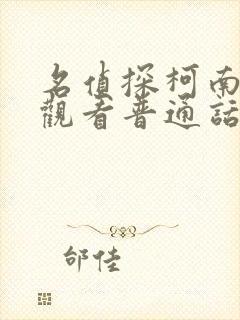 名偵探柯南
觀看普通話
邰佳